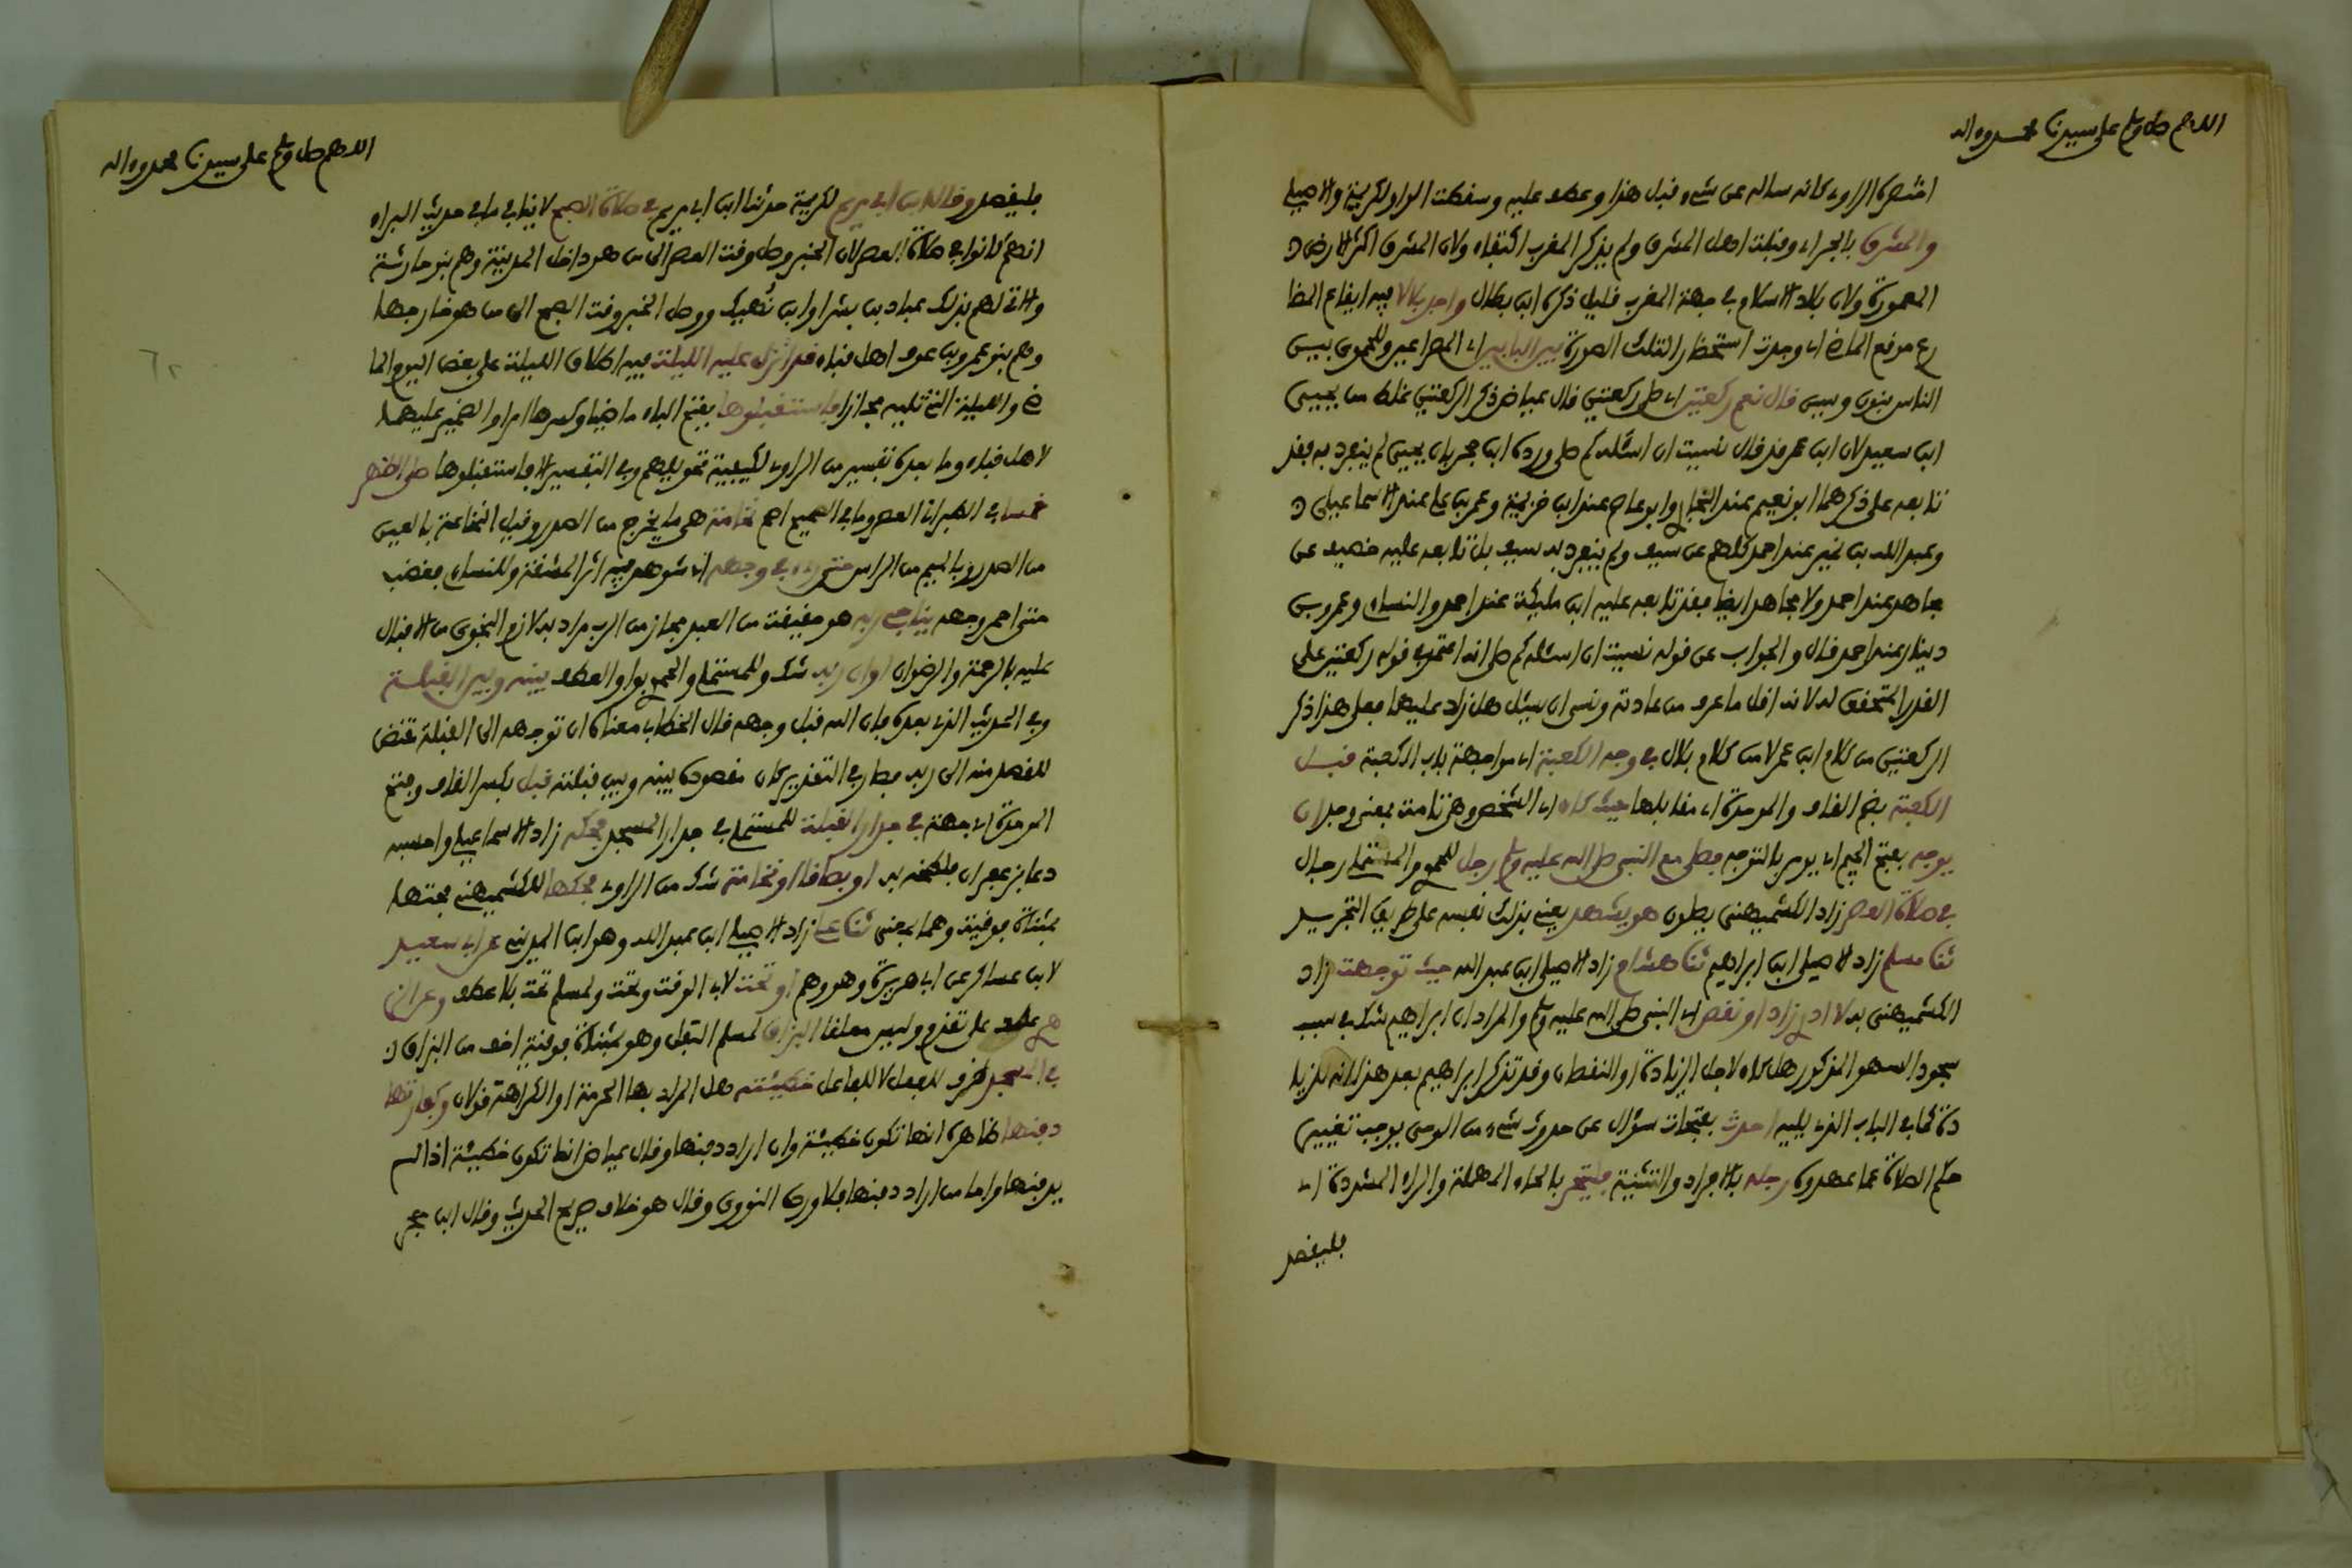 اللهم صل وسلم على سيدنا محمد وءاله
اختصره الراوي كانه ساله عن شيء قبل هذا وعطف عليه وسقطت الواو لكريمة والاصيلي
والمشرق بالجر اي وقبلة اهل المشرق ولم يذكر المغرب اكتفاء ولان المشرق اكثر الارض
المعمورة ولان بلاد الاسلام في جهة المغرب قليل ذكره ابن بطال واجد بلالا فيه ايقاع المضا
رع موقع الماضي اي وجدت استحضارا لتلك الصورة بين البابين اي المصراعين وللحموي بين
الناس بنون وسين قال نعم ركعتين اي صلى ركعتين قال عياض ذكر الركعتين غلط من يحيى
ابن سعيد لان ابن عمر قد قال نسيت ان اسئله كم صلى ورده ابن حجر بان يحيى لم ينفرد به فقد
تابعه على ذكرهما ابو نعيم عند البخاري وابو عاصم عند ابن خزيمة وعمر بن علي عند الاسماعيلي
وعبد الله بن نمير عند احمد كلهم عن سيف ولم ينفرد به سيف بل تابعه عليه خصيف عن
مجاهد عند احمد ولا مجاهد ايضا فقد تابعه عليه ابن مليكة عند احمد والنساءي وعمرو بن
دينار عند احمد قال والجواب عن قوله نسيت ان اسئله كم صلى انه اعتمد في قوله ركعتين على
القدر المتحقق له لانه اقل ما عرف من عادته ونسي ان يسئل هل زاد عليهما فعلى هذا ذكر
الركعتين من كلام ابن عمر لا من كلام بلال في وجه الكعبة اي مواجهة باب الكعبة قبل
الكعبة بضم القاف والموحدة اي مقابلها حيث كان اي الشخص وهي تامة بمعنى وجد ان
يوجه بفتح الجيم اي يومر بالتوجه فصلى مع النبي صلى الله عليه وسلم رجل للحموي والمستملي رجال
في صلاة العصر زاد الكشميهني يصلون هو يشهد يعني بذلك نفسه على طريق التجريد
ثنا مسلم زاد الاصيلي ابن ابراهيم ثنا هشام زاد الاصيلي ابن عبد الله حيث توجهت زاد
الكشميهني به لا ادري زاد او نقص اي النبي صلى الله عليه وسلم والمراد ان ابراهيم شك في سبب
سجود السهو المذكور هل كان لاجل الزيادة او النقصان وقد تذكر ابراهيم بعد هذا انه للزيا
دة كما في الباب الذي يليه احدث بفتحات سؤال عن حدوث شيء من الوحي يوجب تغيير
حكم الصلاة عما عهدوه رجله بالافراد والتثنية فليتحر بالحاء المهملة والراء المشددة اي
فليقصد
اللهم صل وسلم على سيدنا محمد وءاله
فليقصد وقال ابن ابي مريم لكريمة حدثنا ابن ابي مريم في صلاة الصبح لا ينافي ما في حديث البراء
انهم كانوا في صلاة العصر لان الخبر وصل وقت العصر الى من هو داخل المدينة وهم بنو حارثة
والاتي لهم بذلك عباد بن بشر او ابن نهيك ووصل الخبر وقت الصبح الى من هو خارجها
وهم بنو عمرو بن عوف اهل قباء قد انزل عليه الليلة فيه اطلاق الليلة على بعض اليوم الما
ضي والليلة التي تليه مجازا فاستقبلوها بفتح الباء ماضيا وكسرها امرا والضمير عليهما
لاهل قباء وما بعده تفسير من الراوي لكيفية تحويلهم وفي التفسير الا فاستقبلوها صلى الظهر
خمسا في الطبراني العصر وما في الصحيح اصح نخامة هي ما يخرج من الصدر وقيل النخاعة بالعين
من الصدر وبالميم من الراس حتى رءي في وجهه اي شوهد فيه اثر المشقة وللنساءي فغضب
حتى احمر وجهه يناجي ربه هو حقيقة من العبد مجاز من الرب مراد به لازم النجوى من الاقبال
عليه بالرحمة والرضوان او ان ربه شك وللمستملي والحموي بواو العطف بينه وبين القبلة
وفي الحديث الذي بعده فان الله قبل وجهه قال الخطابي معناه ان توجهه الى القبلة مفض
للقصد منه الى ربه فصار في التقدير كان مقصوده بينه وبين قبلته قبل بكسر القاف وفتح
الموحدة اي جهة في جدار القبلة للمستملي في جدار المسجد فحكه زاد الاسماعيلي واحسبه
دعا بزعفران فلطخه به او بصاقا او نخامة شك من الراوي فحكها للكشميهني فحتها
بمثناة فوقية وهما بمعنى ثنا علي زاد الاصيلي ابن عبد الله وهو ابن المديني عن ابي سعيد
لابن عساكر عن ابي هريرة وهو وهم او تحت لابي الوقت وتحت ولمسلم تحت بلا عطف وعن الز
هري عطف على تقدم وليس معلقا البزاق لمسلم التفل وهو بمثناة فوقية اخف من البزاق
في المسجد ظرف للفعل لا للفاعل خطيئة هل المراد بها الحرمة او الكراهة قولان وكفارتها
دفنها ظاهره انها تكون خطيئة وان اراد دفنها وقال عياض انما تكون خطيئة اذا لم
يدفنها واما من اراد دفنها فلا ورده النووي وقال هو خلاف صريح الحديث وقال ابن حجر